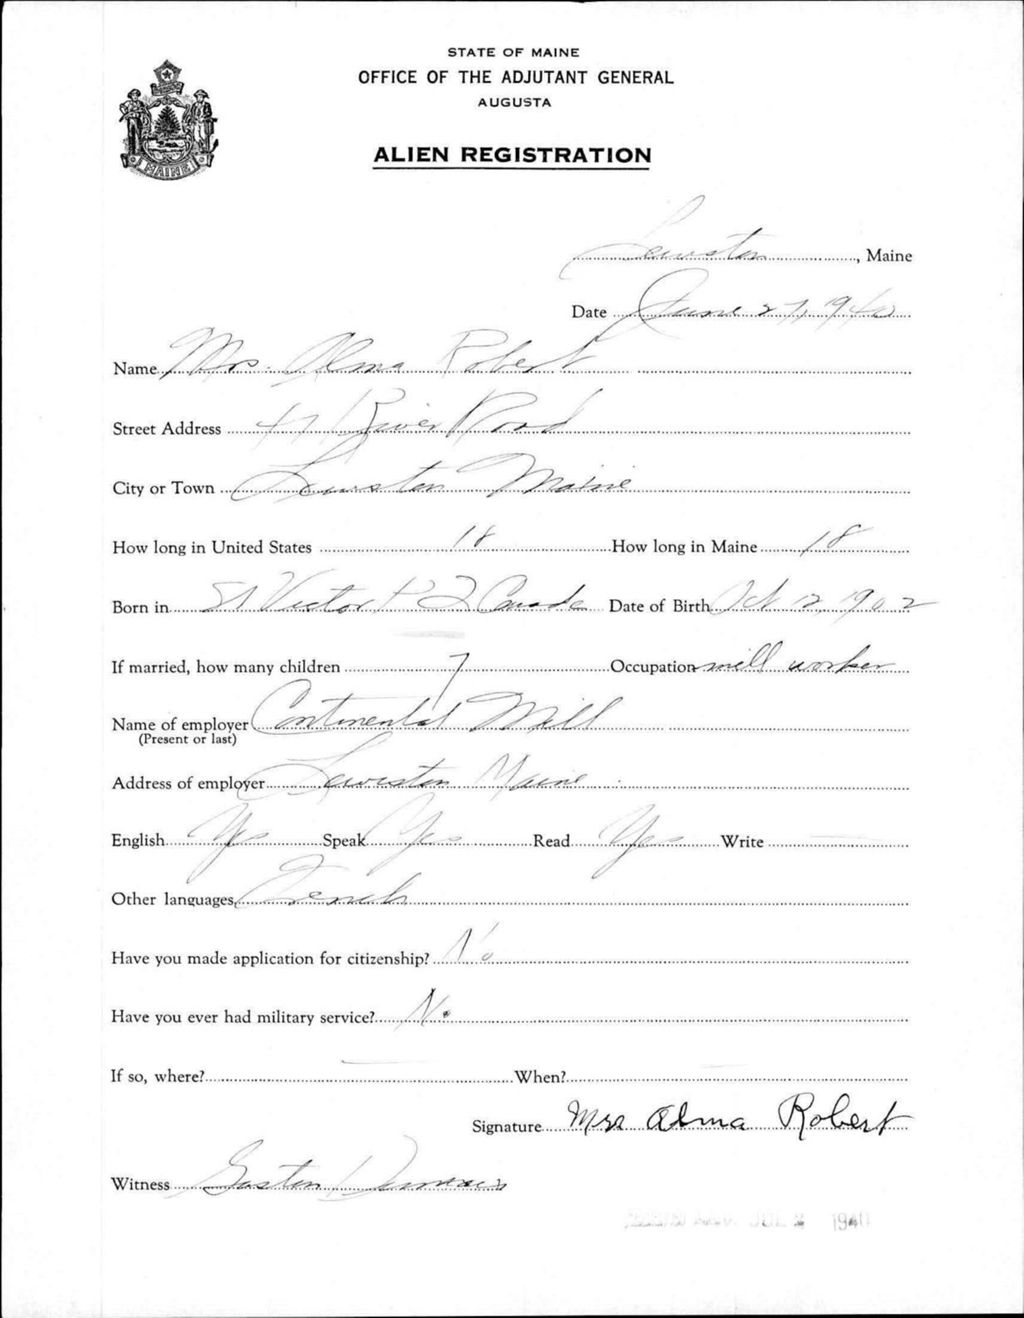 STATE OF MAINE
OFFICE OF THE ADJUTANT GENERAL
AUGUSTA
ALIEN REGISTRATION
MAINE
Lewiston, Maine
Date June 27, 1940
Name Mrs. Alma Robert
Street Address 47 River Road
City or Town Lewiston Maine
How long in United States 18 How long in Maine 18
Born in St Victor P Q Canada Date of Birth Oct 12, 1902
If married, how many children 7 Occupation mill worker
Name of employer Continental Mill
(Present or last)
Address of employer Lewiston Maine
English Yes Speak Yes Read Yes Write —
Other languages French
Have you made application for citizenship? No
Have you ever had military service? No
If so, where? — When? —
Signature Mrs Alma Robert
Witness Gaston Dumais
JUL 2 1940